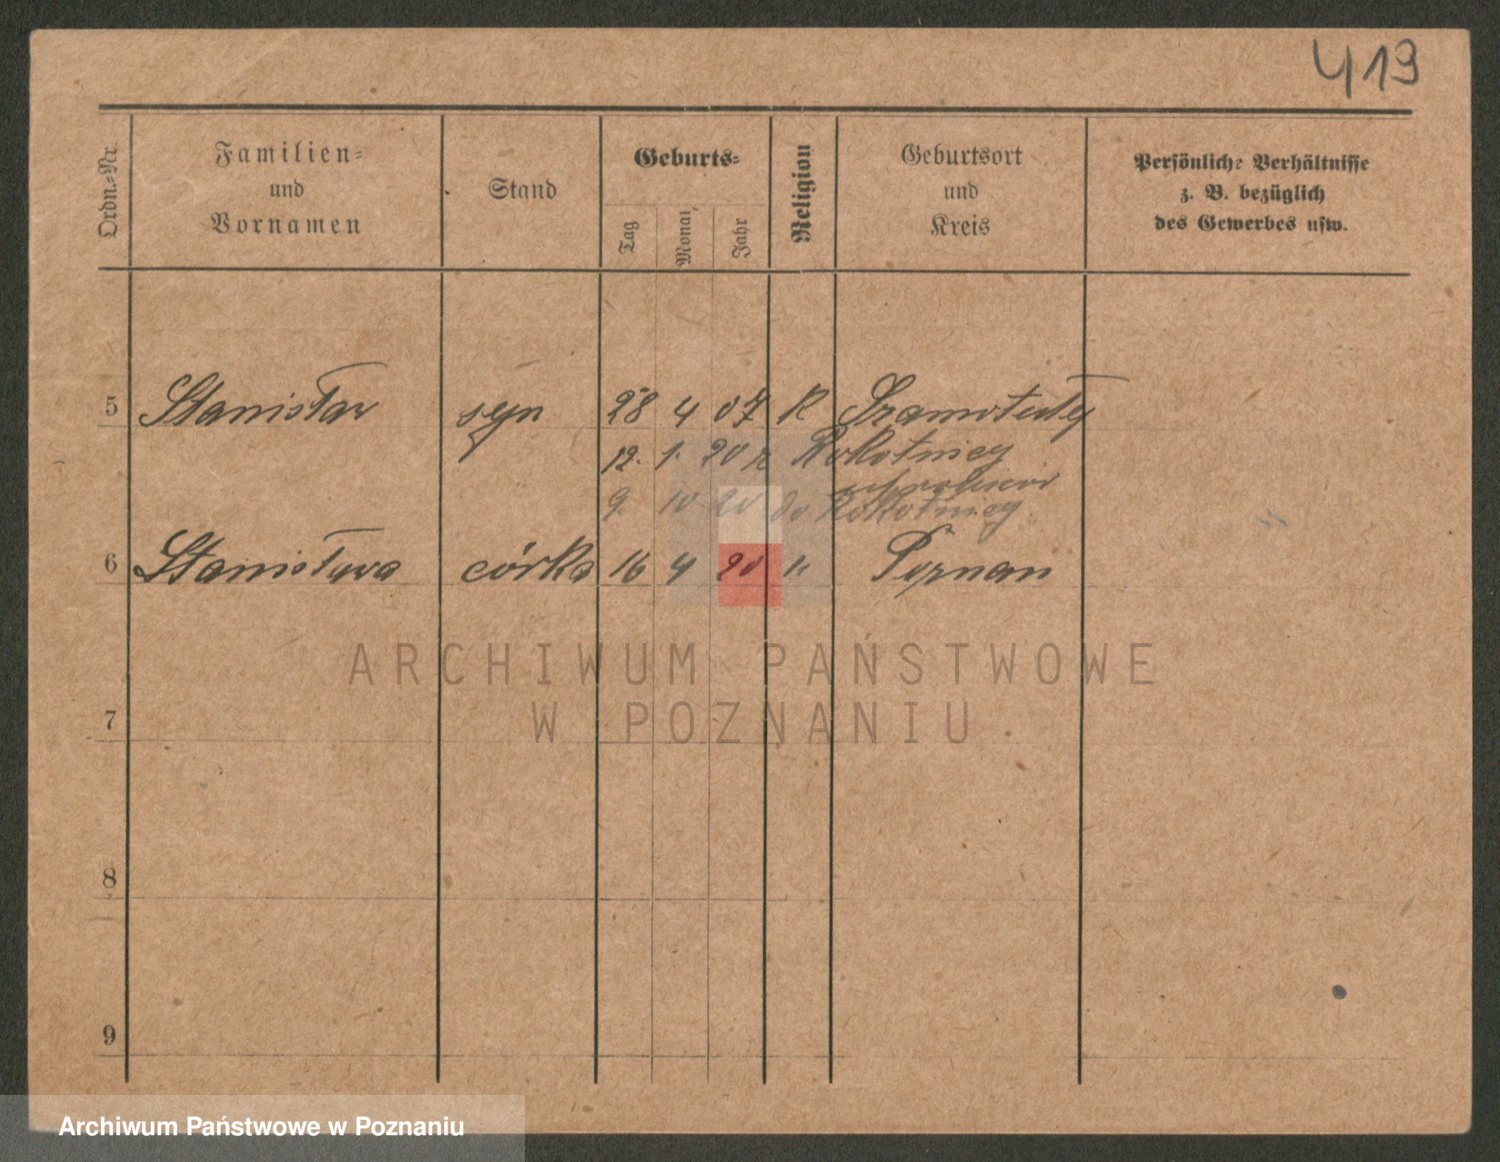 419
Ordn.-Nr.
Familien-
und
Vornamen
Stand
Geburts-
Tag
Monat
Jahr
Religion
Geburtsort
und
Kreis
Persönliche Verhältnisse
z. B. bezüglich
des Gewerbes usw.
5 Stanisław syn 28 4 07 K Szamotuły
12. 1. 20 z Rokotnicy
9. 10 20 do Rokotnicy
6 Stanisława córka 16 4 20 " Poznań
ARCHIWUM PAŃSTWOWE
W POZNANIU
7
8
9
Archiwum Państwowe w Poznaniu